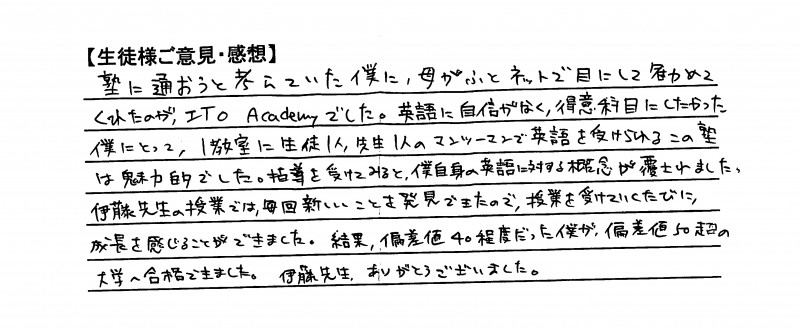 【生徒様ご意見・感想】
塾に通おうと考えていた僕に、母がふとネットで目にして勧めて
くれたのが、ITO Academyでした。英語に自信がなく、得意科目にしたかった
僕にとって、1教室に生徒1人、先生1人のマンツーマンで英語を受けられるこの塾
は魅力的でした。指導を受けてみると、僕自身の英語に対する概念が覆されました。
伊藤先生の授業では、毎回新しいことを発見できたので、授業を受けていくたびに、
成長を感じることができました。結果、偏差値40程度だった僕が、偏差値50超の
大学へ合格できました。伊藤先生、ありがとうございました。